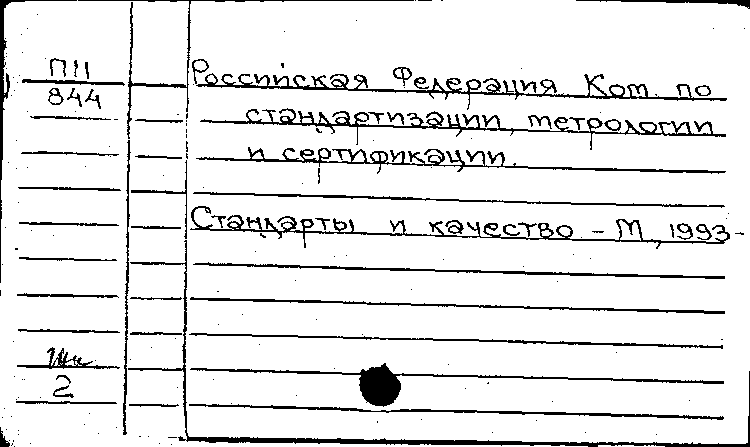 П11
844
Российская Федерация. Ком. по
стандартизации, метрологии
и сертификации.
Стандарты и качество - М, 1993-
2